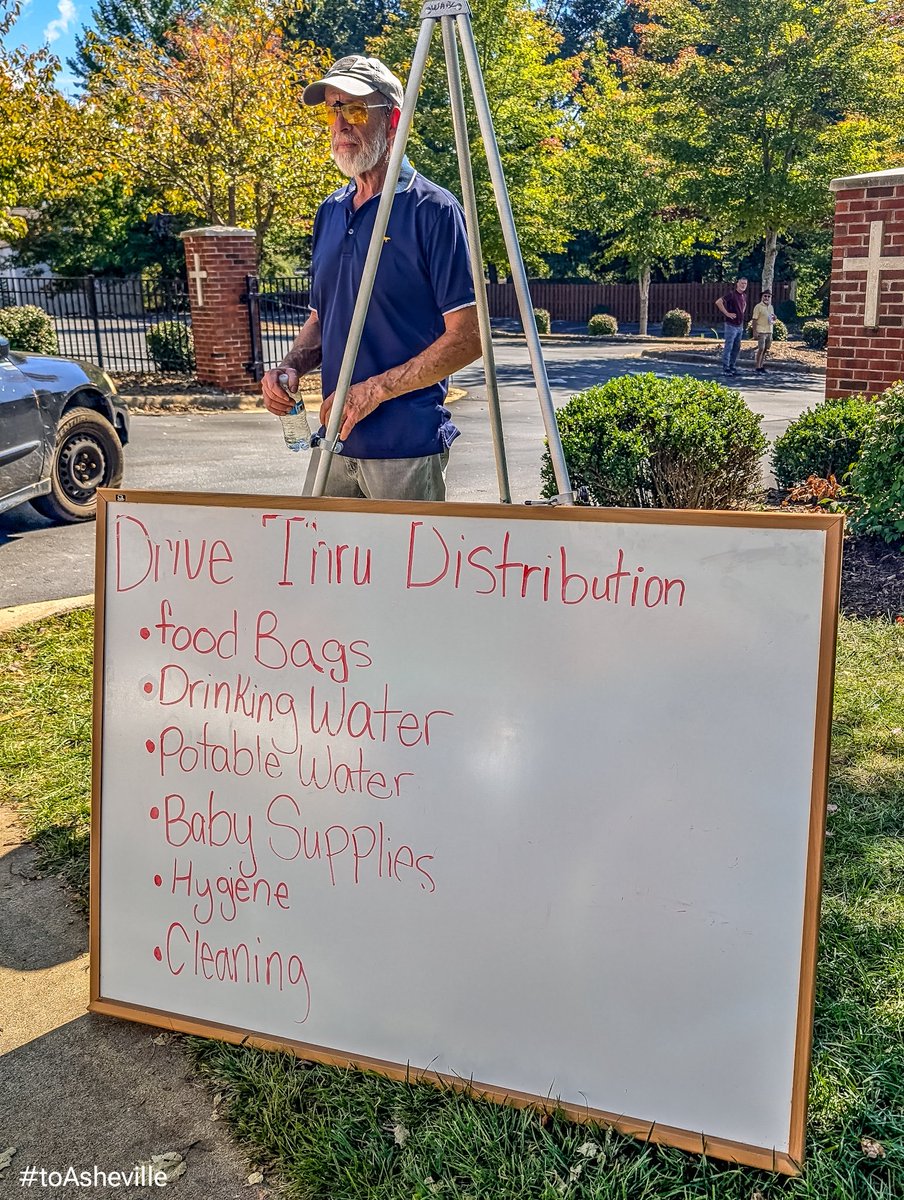 Drive Thru Distribution
• food Bags
• Drinking Water
• Potable Water
• Baby Supplies
• Hygiene
• Cleaning
#toAsheville